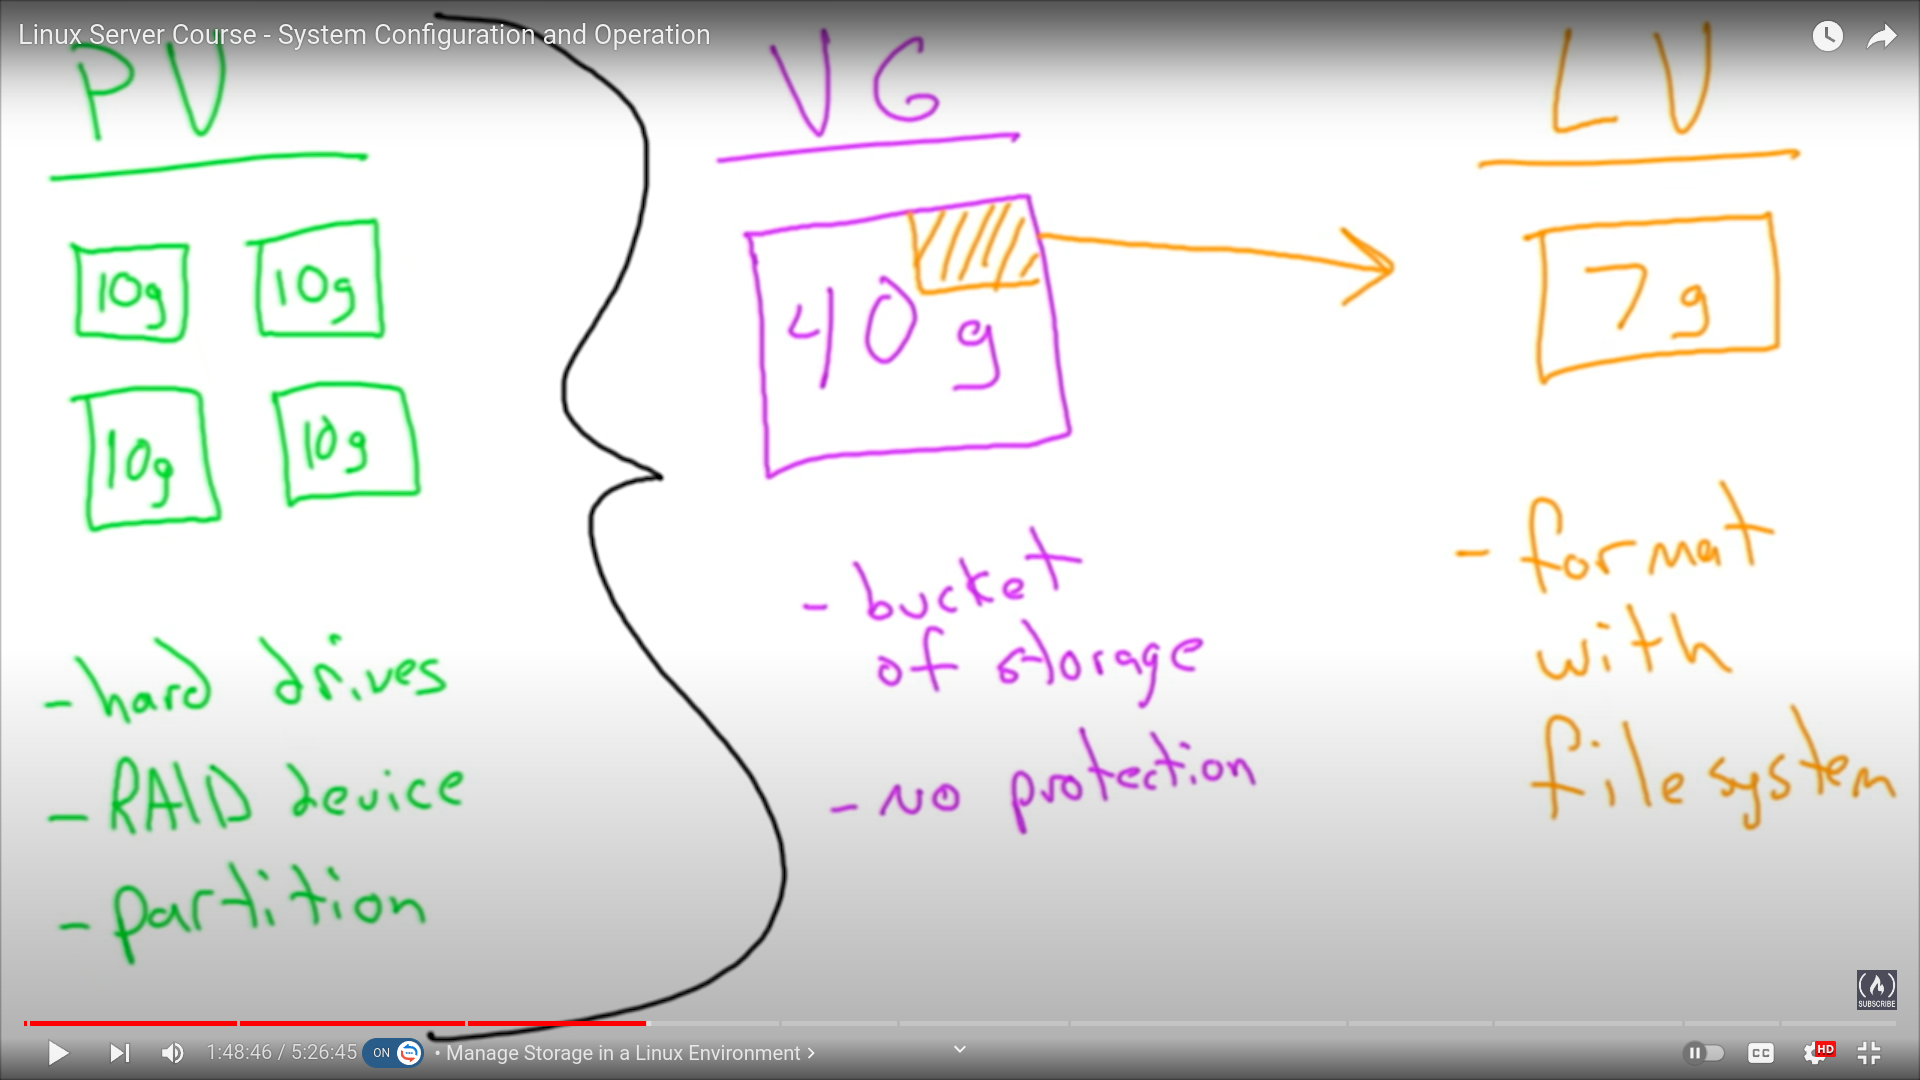 Linux Server Course - System Configuration and Operation
PV
10g 10g
10g 10g
- hard drives
- RAID device
- partition
VG
40g
- bucket
of storage
- no protection
LV
7g
- format
with
filesystem
SUBSCRIBE
1:48:46 / 5:26:45 ON • Manage Storage in a Linux Environment >
CC HD